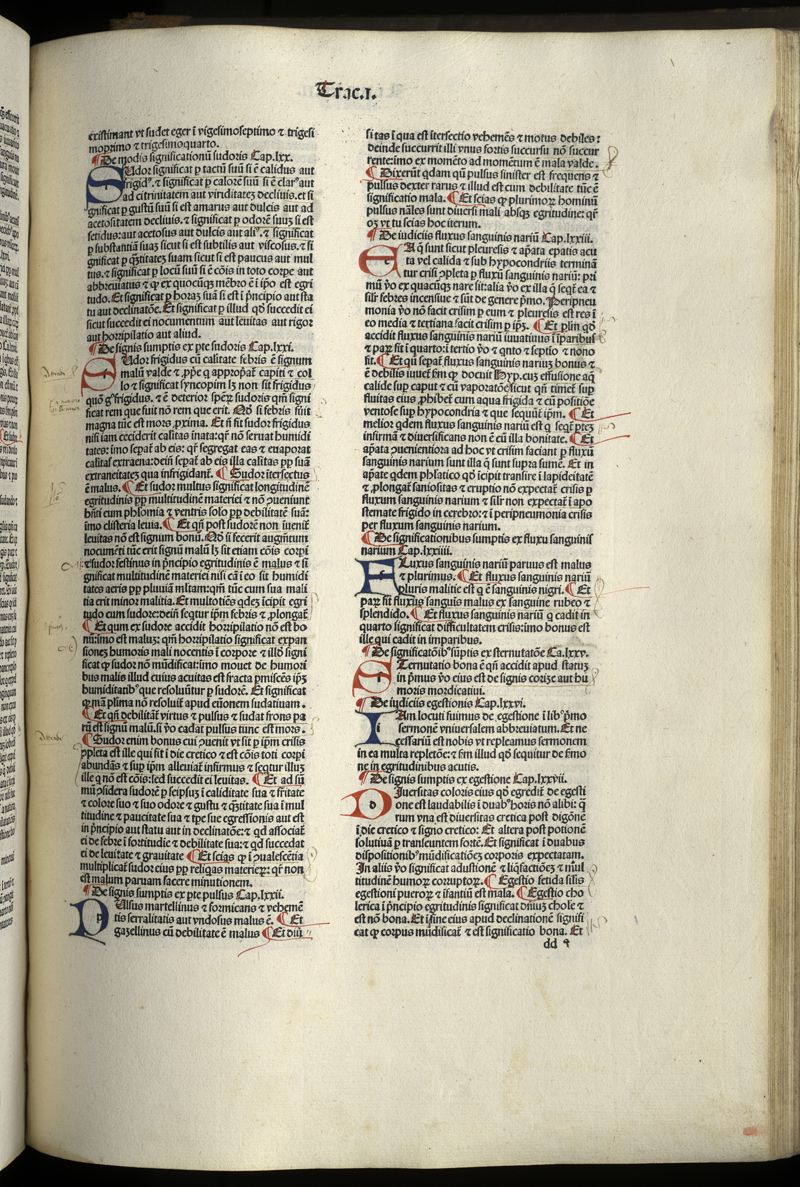 Trac.1.
existimant vt sudet eger ĩ vigesimoseptimo ⁊ trigesi
moprimo ⁊ trigesimoquarto.
¶ De modis significationũ sudoris Cap.lxx.
SUdor significat ꝑ tactũ suũ si ẽ calidus aut
frigidꝰ. ⁊ significat ꝑ calorẽ suũ si ẽ clarꝰ aut
ad citrinitatem aut viriditateʒ decliuis. et si
gnificat ꝑ gustũ suũ si est amarus aut dulcis aut ad
acetositatem decliuis. ⁊ significat ꝑ odorẽ suuʒ si est
fetidus: aut acetosus aut dulcis aut aliꝰ. ⁊ significat
ꝑ substantiã suaʒ sicut si est subtilis aut viscosus. ⁊ si
gnificat ꝑ q̃titateʒ suam sicut si est paucus aut mul
tus. ⁊ significat ꝑ locũ suũ si ẽ cõis in toto corpe aut
abbreuiatus ⁊ ꝙ ex quocũqʒ mẽbro ẽ ĩ ipo est egri
tudo. Et significat ꝑ horaʒ suã si est ĩ prĩcipio aut sta
tu aut declinatõe. Et significat ꝑ illud qđ succedit ei
sicut succedit ei nocumentum aut leuitas aut rigor
aut horripilatio aut aliud.
¶ De signis sumptis ex pte sudoris Cap.lxxi.
SUdor frigidus cũ calitate febris ẽ signum
malũ valde ⁊ ꝓpe q appropat capiti ⁊ col
lo ⁊ significat syncopim lʒ non sit frigidus
quõ gͦ frigidus. ⁊ ẽ deterior speꝝ sudoris qm̃ signi
ficat rem que fuit nõ rem que erit. Qđ si febris fuit
magna tũc est mors ꝓxima. Et ñ fit sudor frigidus
nisi iam ceciderit calitas inata: qr̃ nõ seruat humidi
tates: imo sepat ab eis: qr̃ segregat eas ⁊ euaporat
calitas extranea: dein̄ sepat ab eis illa calitas ꝑꝑ suã
extraneitateʒ qua infrigidant̃. ¶ Sudor ĩtersectus
ẽ malus. ¶ Et sudor multus significat longitudinẽ
egritudinis ꝑꝑ multitudinẽ materiei ⁊ nõ ꝯueniunt
hñti eum phlomia ⁊ ventris solo ꝑꝑ debilitatẽ suã:
imo clisteria leuia. ¶ Et qñ post sudorẽ non ĩuenit̃
leuitas nõ est signum bonũ. Qđ si fecerit augm̃tum
nocumẽti tũc erit signũ malũ lʒ sit etiam cõis corpi
⁊ sudor festinus in prĩcipio egritudinis ẽ malus ⁊ si
gnificat multitudinẽ materiei nisi cã ĩ eo sit humidi
tates aeris ꝑꝑ pluuiã mltam: qm̃ tũc cum sua mali
tia erit minor malitia. Et multotiẽs qdeʒ ĩcipit egri
tudo cum sudore: dein̄ seqt̃ ipm̃ febris ⁊ ꝓlongat̃
¶ Et qum ex sudore accidit horripilatio nõ est bo
nũ: imo est malus: qm̃ horripilatio significat expan
sioneʒ humoris mali nocentis ĩ corpore ⁊ illđ signi
ficat ꝙ sudor nõ mũdificat: imo mouet de humori
bus malis illud cuius acuitas est fracta pmisceʒ ips̃
humiditatibꝰ que resoluũtur ꝑ sudorẽ. Et significat
ꝙ mã plima nõ resoluit̃ apud eũdem sudatiuam.
¶ Et qñ debilitat̃ virtus ⁊ pulsus ⁊ sudat frons pa
rũ est signũ malũ. si vo cadat pulsus tunc est mors.
¶ Sudor enim bonus cui ꝯuenit vt sit ꝑ ipm crisis
ꝯpleta est ille qui fit ĩ die cretico ⁊ est cõis toti corpi
abundãs ⁊ sup ipm̃ alleuiat̃ infirmus ⁊ seqt̃ur illuʒ
ille q nõ est cõis: sed succedit ei leuitas. ¶ Et ad sũ
mũ ꝯsidera sudorẽ ꝑ seipsuʒ ĩ caliditate sua ⁊ frĩtate
⁊ colore suo ⁊ suo odore ⁊ gustu ⁊ q̃titate sua ĩ mul
titudine ⁊ paucitate sua ⁊ tpe sue egressionis aut est
in prĩcipio aut statu aut in declinatõe: ⁊ qđ associat̃
ei de febre ĩ fortitudie ⁊ debilitate sua: ⁊ qđ succedat
ei de leuitate ⁊ grauitate ¶ Et scias ꝙ ĩ ꝯualescẽtia
multiplicat̃ sudor eius ꝑꝑ reliqas materieꝝ: qr̃ non
est malum paruam facere minutionem.
¶ De signis sumptis ex pte pulsus Cap.lxxii.
PUlsus martellinus ⁊ formicans ⁊ vehemẽ
tis serralitatis aut vndosus malus ẽ. ¶ Et
gazellinus cũ debilitate ẽ malus ¶ Et diũ
sitas ĩ qua est ĩtersectio vehemẽs ⁊ motus debiles:
deinde succurrit illi vnus fortis succursu nõ succur
rente: imo ex momẽto ad momentum ẽ mala valde.
¶ Dixerũt qdam qũ pulsus sinister est frequens ⁊
pulsus dexter rarus ⁊ illud est cum debilitate tũc ẽ
significatio mala. ¶ Et scias ꝙ plurimoꝝ hominũ
pulsus nãles sunt diuersi mali absqʒ egritudine: qr̃
oʒ vt tu scias hoc iterum.
¶ De iudiciis fluxus sanguinis nariũ Cap.lxxiii.
EA q̃ sunt sicut pleuresis ⁊ apata epatis acu
ta vel calida ⁊ sub hypocondriis terminã
tur crisi ꝯpleta ꝑ fluxũ sanguinis nariũ: pri
mũ vo ex quacũqʒ nare sit: alia vo ex illa q̃ seqt̃ ea ⁊
silr febres incensiue ⁊ sũt de genere pmo. Peripneu
monia vo nõ facit crisim ꝑ eum ⁊ pleuresis est res ĩ
eo media ⁊ tertiana facit crisim ꝑ ipʒ. ¶ Et plm̃ qđ
accidit fluxus sanguinis nariũ iuuatiuus ĩ ĩparibus
⁊ paꝝ sit ĩ quarto: ĩ tertio vo ⁊ qnto ⁊ septio ⁊ nono
sit. ¶ Et qũ sepat̃ fluxus sanguinis nariuʒ bonus ⁊
ẽ debilis iuuet̃ fm ꝙ docuit Hyp. cuʒ effusione aq̃
calide sup caput ⁊ cũ vaporatõe sicut qñ timet̃ sup
fluitas eius ꝓhibet̃ cum aqua frigida ⁊ cũ positiõe
ventose sup hypocondria ⁊ que sequũt ipm̃. ¶ Et
melior qdem fluxus sanguinis nariũ est q̃ seqt̃ pteʒ
infirmã ⁊ diuersificans non ẽ cũ illa bonitate. ¶ Et
apata ꝯuenientiora ad hoc vt crisim faciant ꝑ fluxũ
sanguinis narium sunt illa q̃ sunt supra sume. Et in
apate qdem phlatico qđ ĩcipit transire ĩ lapideitatẽ
⁊ ꝓlongat̃ saniositas ⁊ eruptio nõ expectat̃ crisis ꝑ
fluxum sanguinis narium ⁊ silr non expectat̃ ĩ apo
stemate frigido in cerebro: ⁊ ĩ peripneumonia crisis
per fluxum sanguinis narium.
¶ De significationibus sumptis ex fluxu sanguinis
narium Cap.lxxiiii.
FLuxus sanguinis nariũ paruus est malus
⁊ plurimus. ¶ Et fluxus sanguinis nariũ
pluris malitie est q̃ ẽ sanguinis nigri. ¶ Et
paꝝ sit fluxus sanguis malus ex sanguine rubeo ⁊
splendido. ¶ Et fluxus sanguinis nariũ q̃ cadit in
quarto significat difficultatem crisis: imo bonus est
ille qui cadit in imparibus.
¶ De significatõibꝰ sũptis ex sternutatõe Ca.lxxv.
STernutatio bona ẽ qñ accidit apud statuʒ
in pmũs vo eius est de signis corize aut hu
moris mordicatiui.
¶ De iudiciis egestionis Cap.lxxvi.
IAm locuti fuimus de egestione ĩ libꝰ pmo
sermonẽ vniuersalem abbreuiatum. Et ne
cessariũ est nobis vt repleamus sermonem
in ea multa repletõe: ⁊ fm illud qđ sequitur de smo
ne in egritudinibus acutis.
¶ De signis sumptis ex egestione Cap.lxxvii.
DIuersitas coloris eius qđ egredit̃ de egesti
one est laudabilis ĩ duabꝰ horis nõ alibi: q̃
rum vna est diuersitas cretica post digõnẽ
ĩ die cretico ⁊ signo cretico: Et altera post potionẽ
solutiuã ꝑ transeuntem fortẽ. Et significat ĩ duabus
dispositionibꝰ mũdificatiõeʒ corporis expectatam.
In aliis vo significat adustionẽ ⁊ liq̃factiõeʒ ⁊ mul
titudinẽ humoꝝ corruptoꝝ. ¶ Egestio fetida silis
egestioni pueroꝝ ⁊ ĩfantiũ est mala. ¶ Egestio cho
lerica ĩ prĩcipio egritudinis significat diuuʒ chole ⁊
est nõ bona. Et ĩ fine eius apud declinationẽ signifi
cat ꝙ corpus mũdificat̃ ⁊ est significatio bona. Et
dd 4